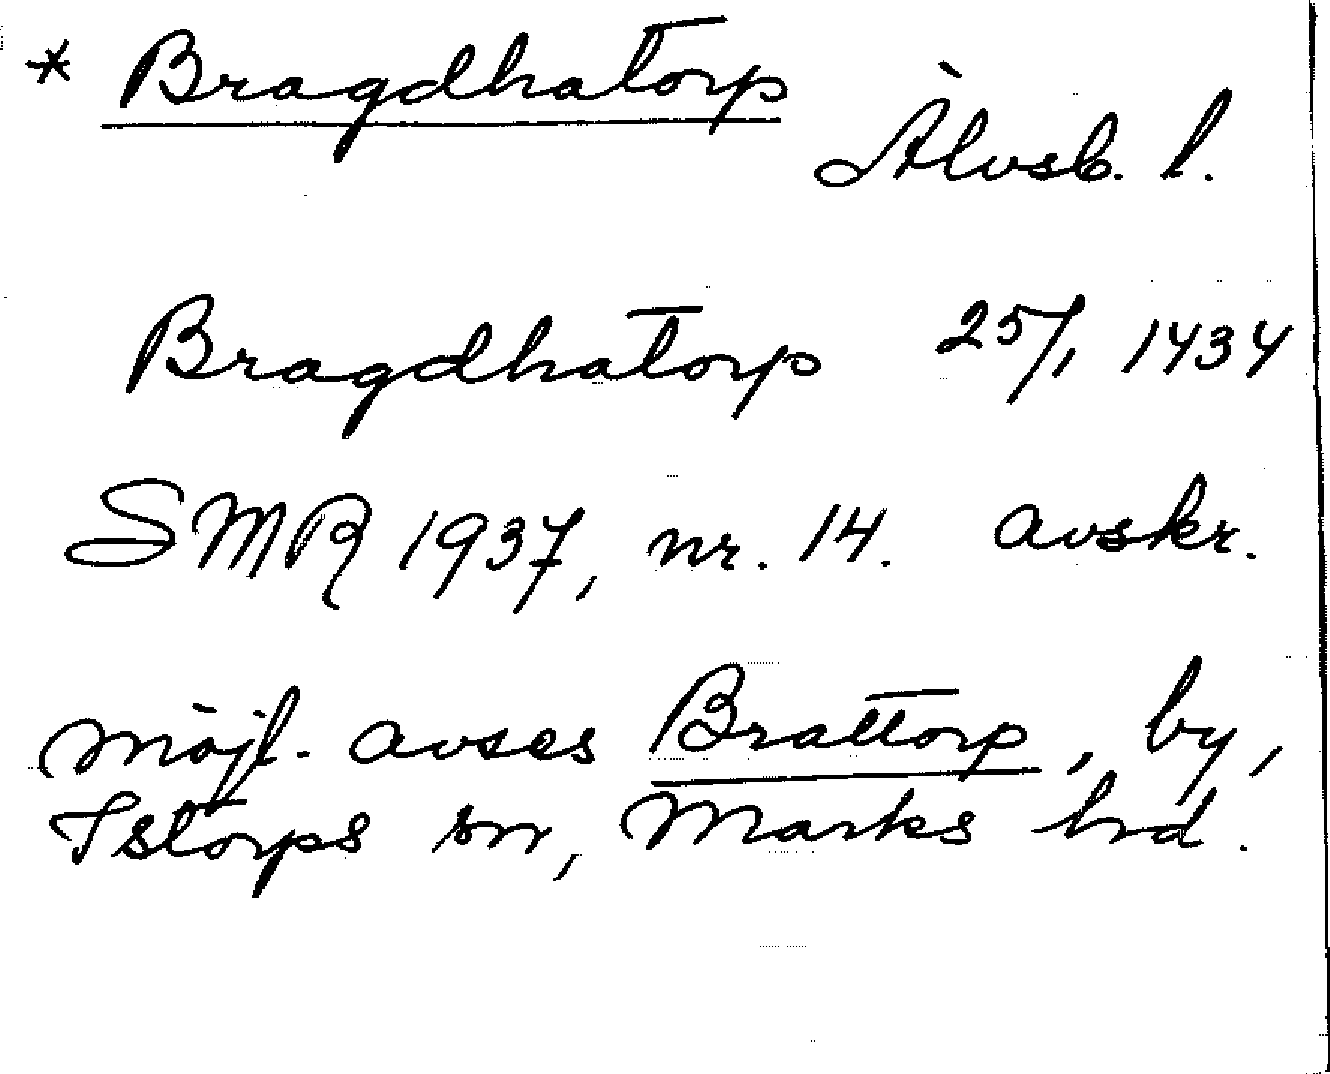 * Bragdhatorp
Älvsb. l.
Bragdhatorp 25/1 1434
SMR 1937, nr. 14. avskr.
möjl. avses Brattorp, by,
Istorps sn, Marks hd.